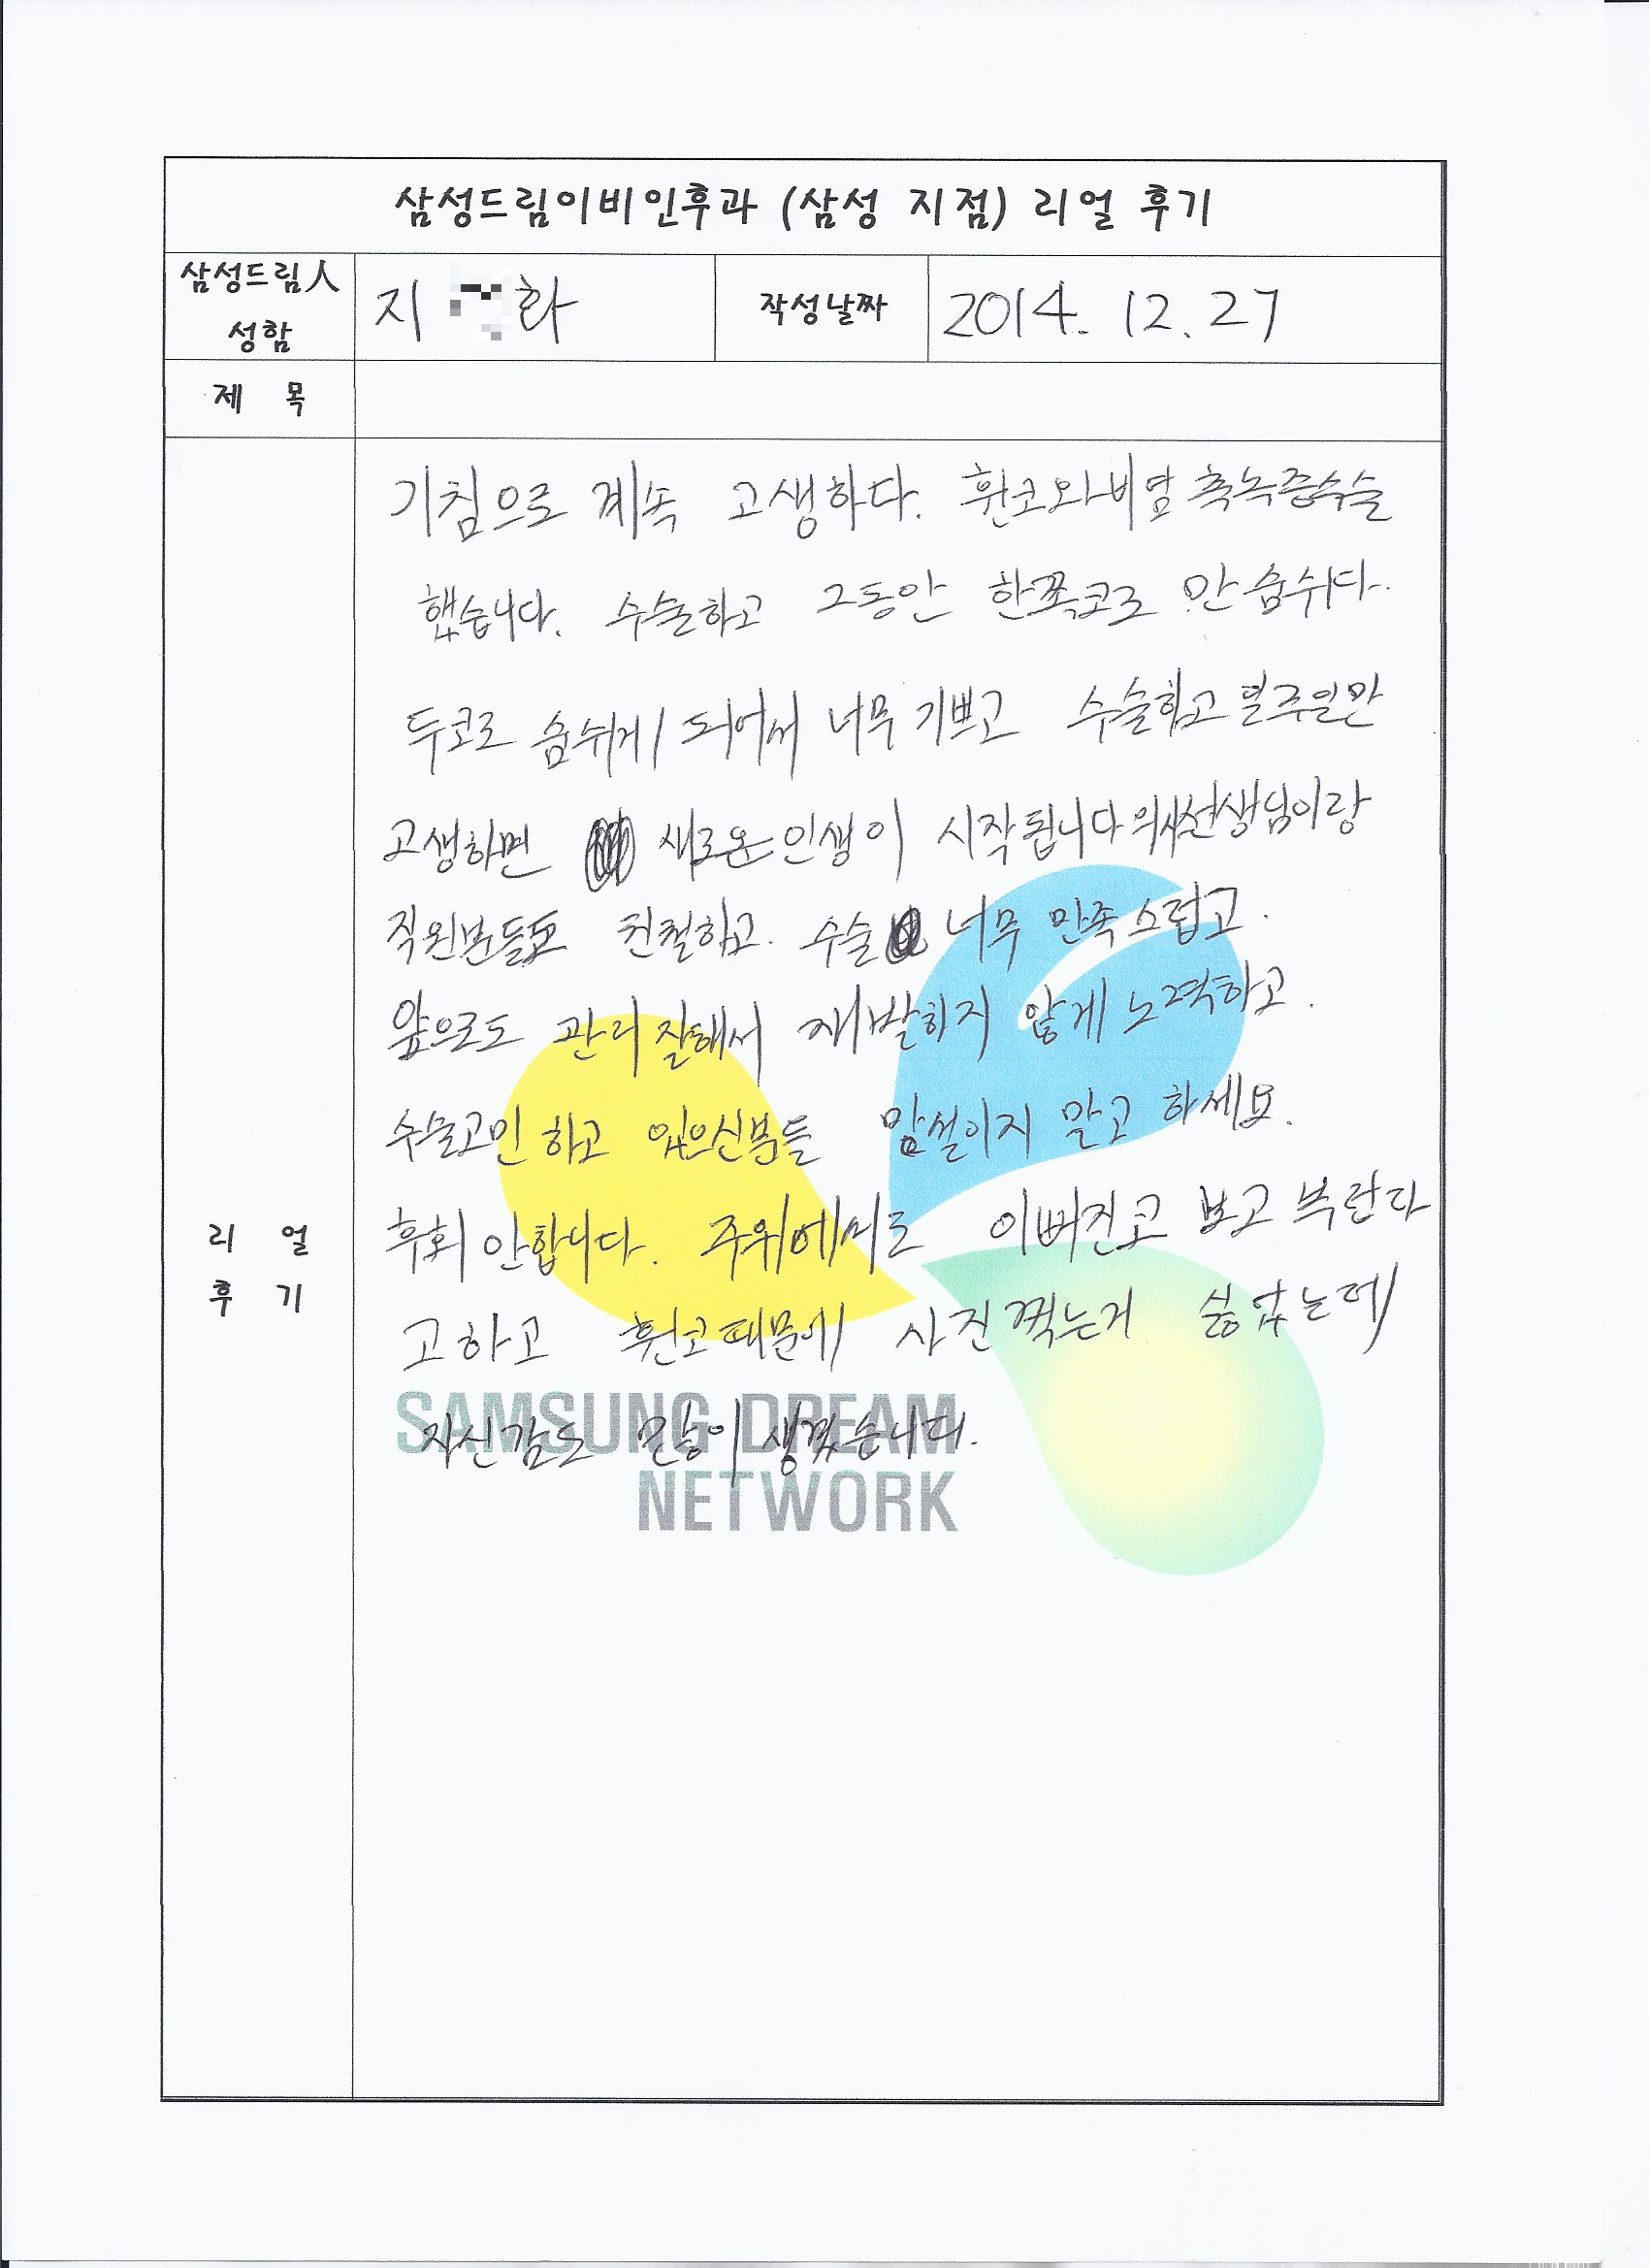 삼성드림이비인후과 (삼성 지점) 리얼 후기
삼성드림人 성함 지 화 작성날짜 2014. 12. 27
제 목
기침으로 계속 고생하다. 휜코와 비염 축녹증수술
했습니다. 수술하고 그동안 한쪽코로 만 숨쉬다.
두코로 숨쉬게 되어서 너무 기쁘고 수술하고 일주일만
고생하면 새로운 인생이 시작됩니다 의사선생님이랑
직원분들도 친철하고. 수술 너무 만족스럽고.
앞으로도 관리 잘해서 재발하지 않게 노력하고.
수술고민 하고 있으신분들 맘설이지 말고 하세요.
후회 안합니다. 주위에서도 이뻐진코 보고 부런다
고하고 휜코때문에 사진찍는거 싫었는데
자신감도 많이 생겼습니다.
리 얼
후 기
SAMSUNG DREAM
NETWORK